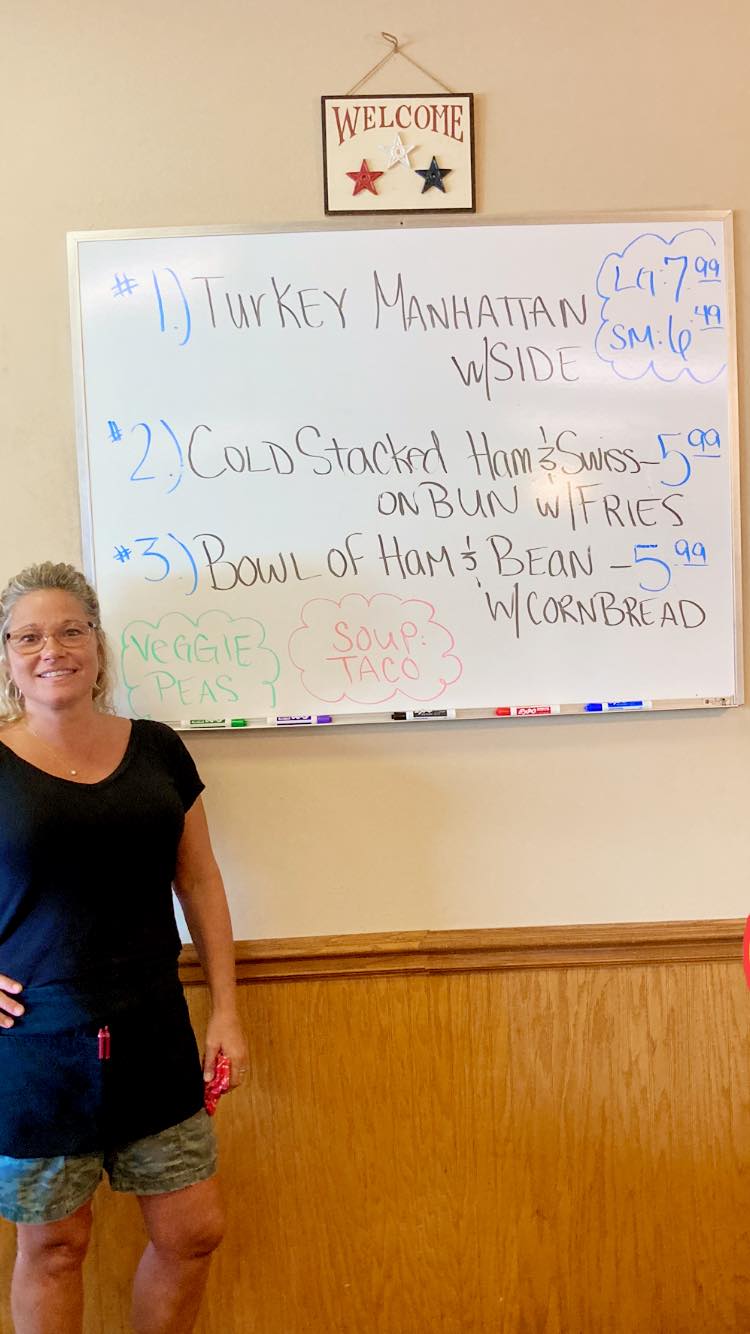 WELCOME
#1.) TurKEY MANHATTAN
W/SIDE
LG: 7.99
SM: 6.49
#2.) COLD Stacked Ham & Swiss - 5.99
ON BUN W/FRIES
#3.) BOWL OF Ham & BEAN - 5.99
W/CORNBREAD
VEGGIE
PEAS
SOUP:
TACO